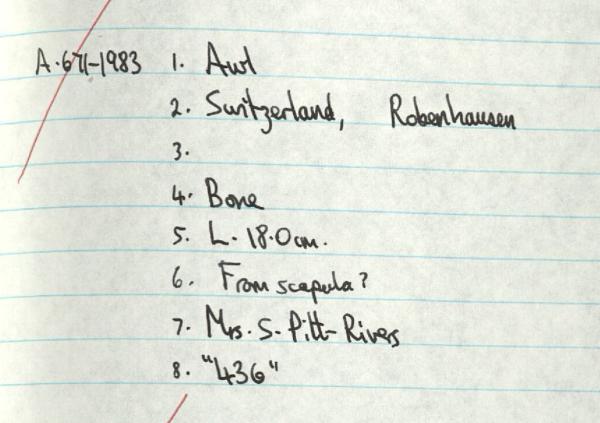 A.671-1983 1. Awl
2. Switzerland, Robenhausen
3.
4. Bone
5. L. 18.0cm.
6. From scapula?
7. Mrs. S. Pitt-Rivers
8. "436"